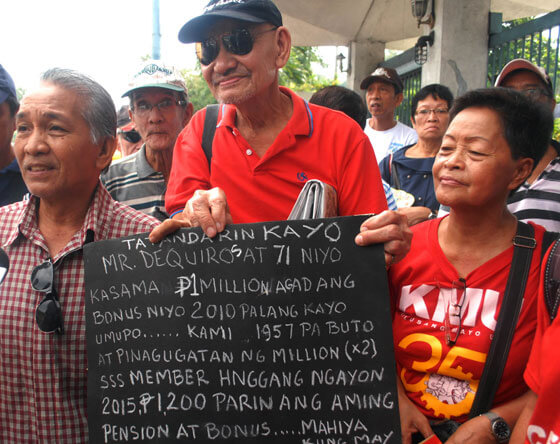 TATANDARIN KAYO
MR. DEQUIROS AT 71 NIYO
KASAMA ₱1 MILLION AGAD ANG
BONUS NIYO 2010 PALANG KAYO
UMUPO...... KAMI 1957 PA BUTO
AT PINAGUGATAN NG MILLION (x2)
SSS MEMBER HNGGANG NGAYON
2015, ₱1,200 PARIN ANG AMING
PENSION AT BONUS.... MAHIYA
KUNG MAY
KMU
35